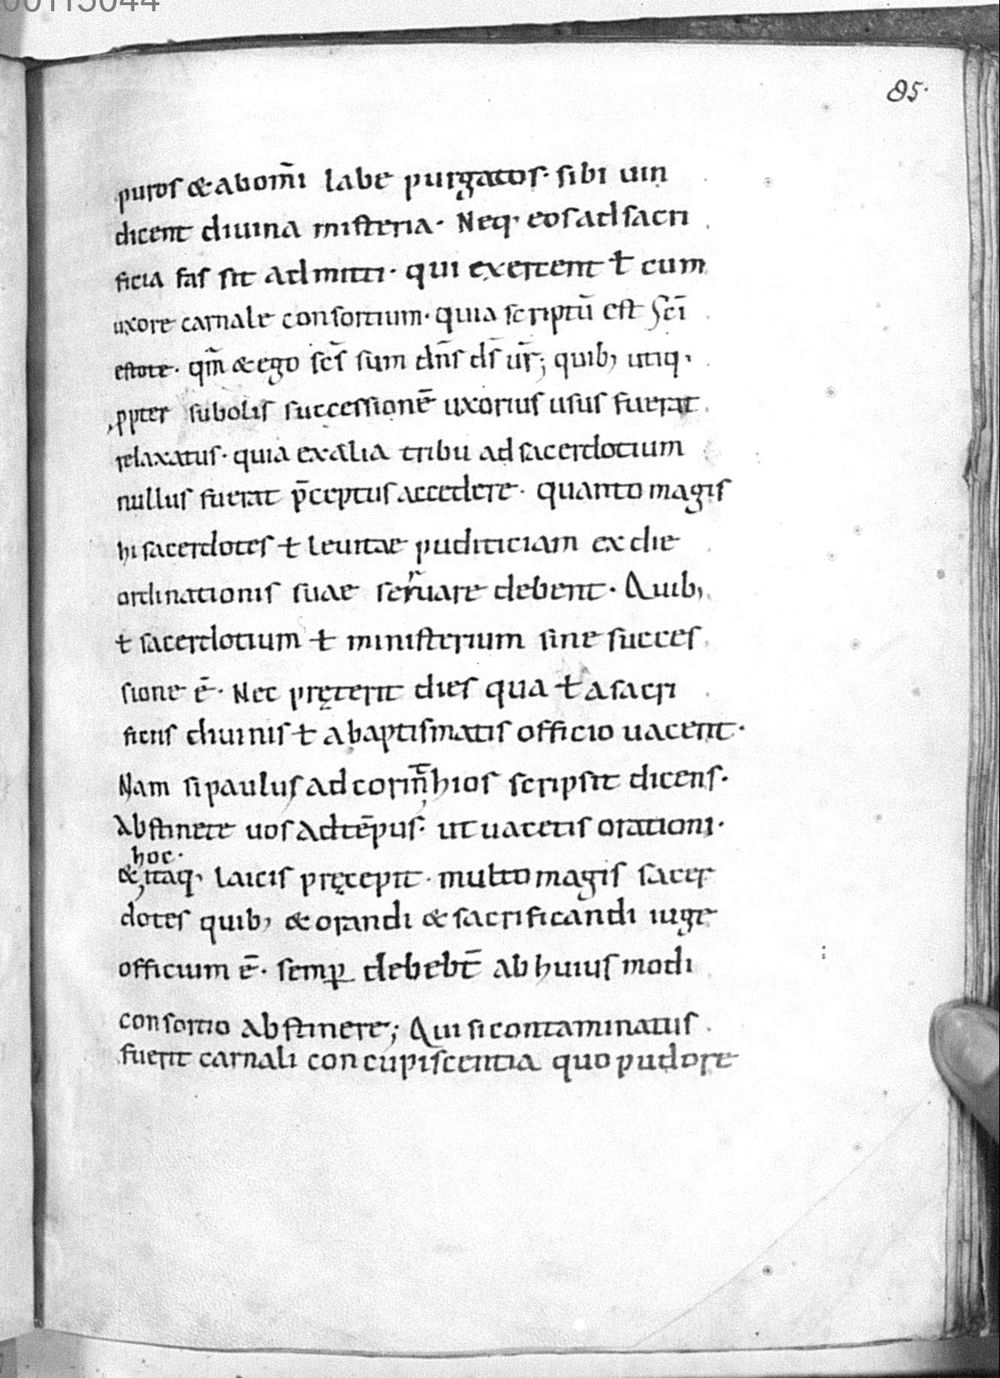 00115044
85.
puros & ab om̄i labe purgatos· sibi uin
dicent diuina misteria· Neq; eos ad sacri
ficia fas sit admitti· qui exercent ƚ cum
uxore carnale consortium· quia scriptū est Sc̄i
estote· qm̄ & ego sc̄s sum dn̄s ds̄ ur̄; quib; utiq;
ꝓpter subolis successionē uxorius usus fuerat
relaxatus· quia ex alia tribu ad sacerdotium
nullus fuerat p̄ceptus accedere· quanto magis
hi sacerdotes ƚ leuitae pudiciciam ex die
ordinationis suae seruare debent· Quib;
ƚ sacerdotium ƚ ministerium sine succes
sione ē· Nec pręterit dies qua ƚ a sacri
ficiis diuinis ƚ a baptismatis officio uacent·
Nam si paulus ad corin̄thios scripsit dicens·
Abstinete uos ad tēpus· ut uacetis orationi·
hoc·
& itaq; laicis pręcepit· multo magis sacer
dotes quib; & orandi & sacrificandi iuge
officium ē· semꝑ debebt̄ ab huius modi
consortio abstinere; Qui si contaminatus
fuerit carnali concupiscentia quo pudore